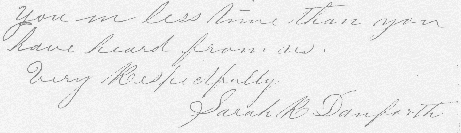 you in less time than you
have heard from us.
Very Respectfully
Sarah R Danforth